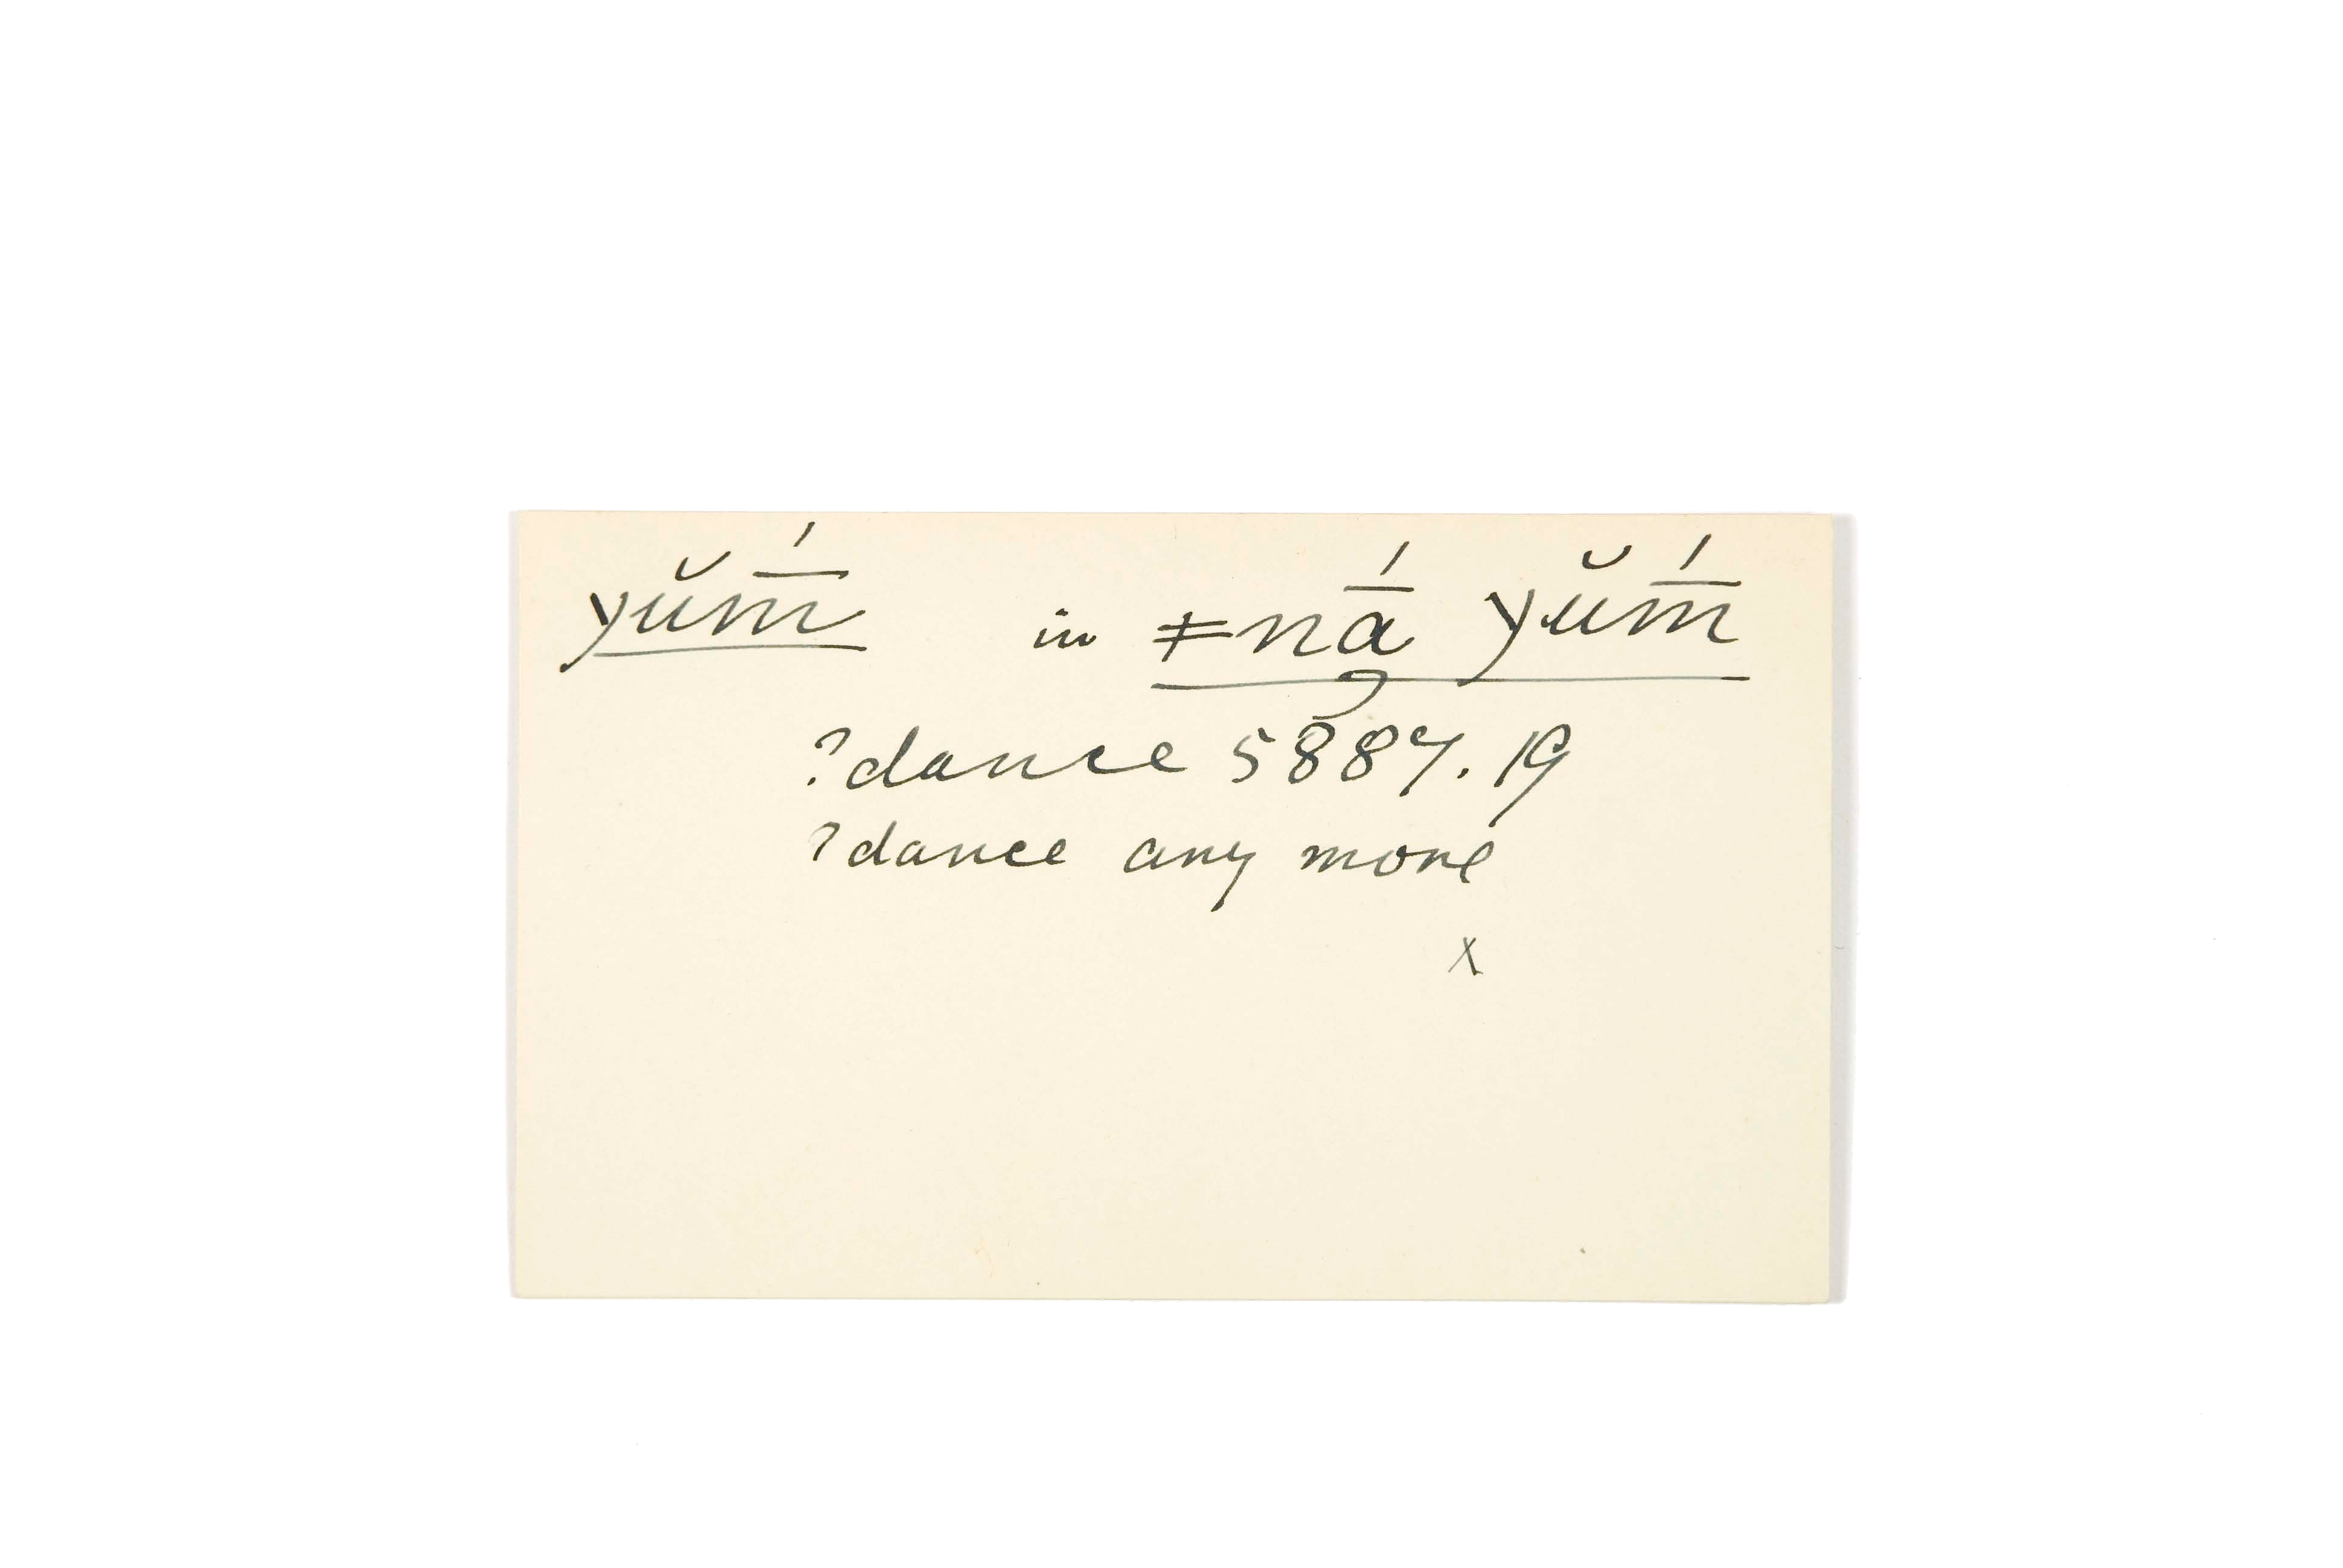 yŭm̄́ in ǂnā́ yŭm̄́
?dance 5887.19
?dance any more
x